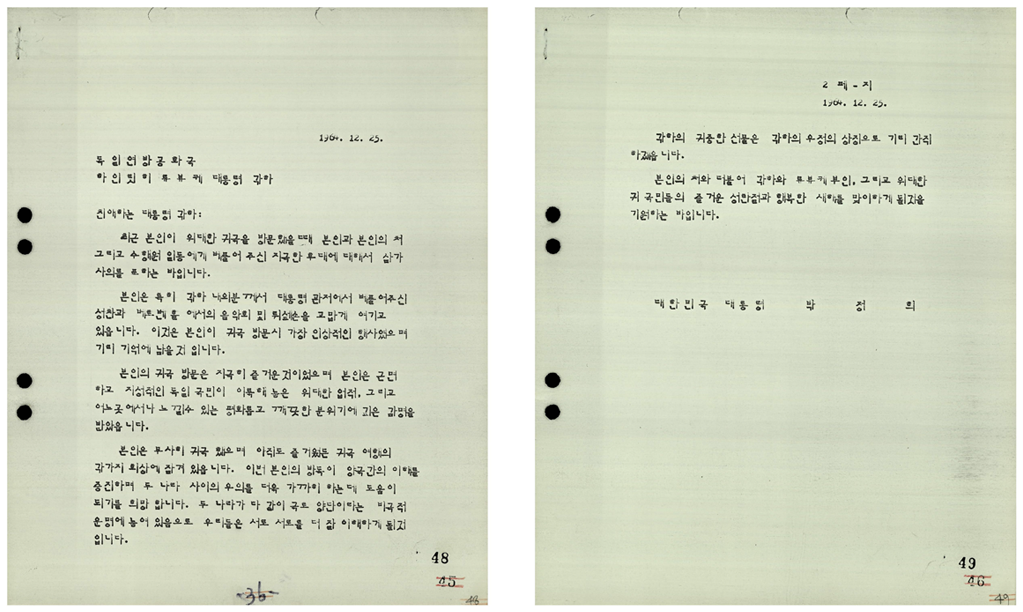 1964. 12. 23.
독일연방공화국
하인릿히 류부케 대통령 각하
친애하는 대통령 각하:
최근 본인이 위대한 귀국을 방문했을때 본인과 본인의 처
그리고 수행원 일동에게 베풀어 주신 지극한 후대에 대해서 삼가
사의를 표하는 바입니다.
본인은 특히 각하 내외분께서 대통령 관저에서 베풀어주신
성찬과 베토벤 홀 에서의 음악회 및 뤼셉숀을 고맙게 여기고
있읍니다. 이것은 본인이 귀국 방문시 가장 인상적인 행사였으며
기리 기억에 남을것 입니다.
본인의 귀국 방문은 지극히 즐거운것이었으며 본인은 근면
하고 지성적인 독일 국민이 이룩해 놓은 위대한 업적, 그리고
어느곳에서나 느낄수 있는 평화롭고 깨끗한 분위기에 깊은 감명을
받았읍니다.
본인은 무사히 귀국 했으며 아직도 즐거웠든 귀국 여행의
갖가지 회상에 잠겨 있읍니다. 이번 본인의 방독이 양국간의 이해를
증진하며 두 나라 사이의 우의를 더욱 가까히 하는데 도움이
되기를 희망 합니다. 두 나라가 다 같이 국토 양단이라는 비극적
운명에 놓여 있음으로 우리들은 서로 서로를 더 잘 이해하게 될것
입니다.
48
45
36
48
2 페-지
1964. 12. 23.
각하의 귀중한 선물은 각하의 우정의 상징으로 기리 간직
하겠읍니다.
본인의 처와 더불어 각하와 류부케부인, 그리고 위대한
귀 국민들의 즐거운 성탄절과 행복한 새해를 맞이하게 될것을
기원하는 바입니다.
대한민국 대통령 박 정 희
49
46
49